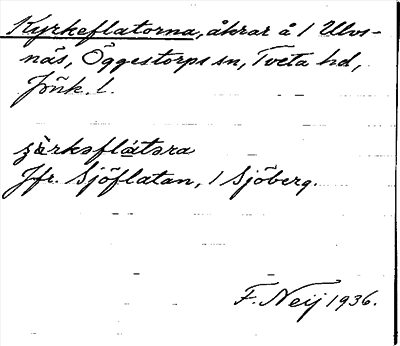 Kyrkeflatorna, åkrar å 1 Ulvs-
näs, Öggestorps sn, Tveta hd,
Jönk. l.
Jfr. Sjöflatan, 1 Sjöberg.
F. Neij 1936.